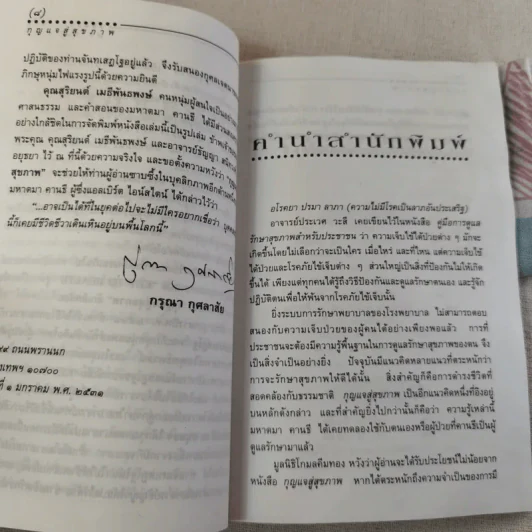 (๘)
กุญแจสู่สุขภาพ
ปฏิบัติของท่านจันทเสฏโฐอยู่แล้ว จึงรับสนองกุศลเจตนา
ภิกษุหนุ่มไฟแรงรูปนี้ด้วยความยินดี
คุณสุริยนต์ เมธีพันธพงษ์ คนหนุ่มผู้สนใจเป็น
ศาสนธรรม และคำสอนของมหาตมา คานธี ได้มีส่วน
อย่างใกล้ชิดในการจัดพิมพ์หนังสือเล่มนี้เป็นรูปเล่ม
พระคุณ คุณสุริยนต์ และอาจารย์ธัญญา
อยุธยา ไว้ ณ ที่นี้ด้วยความจริงใจ และขอตั้งความหวังว่า
สุขภาพ" จะช่วยให้ท่านผู้อ่านซาบซึ้งในบุคลิกภาพอีกด้าน
มหาตมา คานธี ผู้ซึ่งแอลเบิร์ต ไอน์สไตน์ ได้กล่าวไว้ว่า
"...อาจเป็นได้ที่ในยุคต่อไปจะไม่มีใครอยากเชื่อว่า
นี้ก็เคยมีชีวิตชีวาเดินเหินอยู่บนพื้นโลกนี้"
กรุณา กุศลาสัย
ถนนพรานนก
๑๐๗๐๐
๑ มกราคม พ.ศ. ๒๕๓๑
คำนำสำนักพิมพ์
อโรคยา ปรมา ลาภา (ความไม่มีโรคเป็นลาภอันประเสริฐ)
อาจารย์ประเวศ วะสี เคยเขียนไว้ในหนังสือ คู่มือการดูแล
รักษาสุขภาพสำหรับประชาชน ว่า ความเจ็บไข้ได้ป่วยต่าง ๆ มักจะ
เกิดขึ้นโดยไม่เลือกว่าจะเป็นใคร เมื่อไหร่ และที่ไหน แต่ความเจ็บไข้
ได้ป่วยและโรคภัยไข้เจ็บต่าง ๆ ส่วนใหญ่เป็นสิ่งที่ป้องกันไม่ให้เกิด
ขึ้นได้ เพียงแต่ทุกคนได้รู้ถึงวิธีป้องกันและดูแลรักษาตนเอง และรู้จัก
ปฏิบัติตนเพื่อให้พ้นจากโรคภัยไข้เจ็บนั้น
ยิ่งระบบการรักษาพยาบาลของโรงพยาบาล ไม่สามารถตอบ
สนองกับความเจ็บป่วยของผู้คนได้อย่างเพียงพอแล้ว การที่
ประชาชนจะต้องมีความรู้พื้นฐานในการดูแลรักษาสุขภาพของตน จึง
เป็นสิ่งจำเป็นอย่างยิ่ง ปัจจุบันมีแนวคิดหลายแนวที่ตระหนักว่า
การจะรักษาสุขภาพให้ดีได้นั้น สิ่งสำคัญก็คือการดำรงชีวิตที่
สอดคล้องกับธรรมชาติ กุญแจสู่สุขภาพ เป็นอีกแนวคิดหนึ่งที่อิงอยู่
บนหลักดังกล่าว และที่สำคัญยิ่งไปกว่านั้นก็คือว่า ความรู้เหล่านี้
มหาตมา คานธี ได้เคยทดลองใช้กับตนเองหรือผู้ป่วยที่คานธีเป็นผู้
ดูแลรักษามาแล้ว
มูลนิธิโกมลคีมทอง หวังว่าผู้อ่านจะได้รับประโยชน์ไม่น้อยจาก
หนังสือ กุญแจสู่สุขภาพ หากได้ตระหนักถึงความจำเป็นของการมี